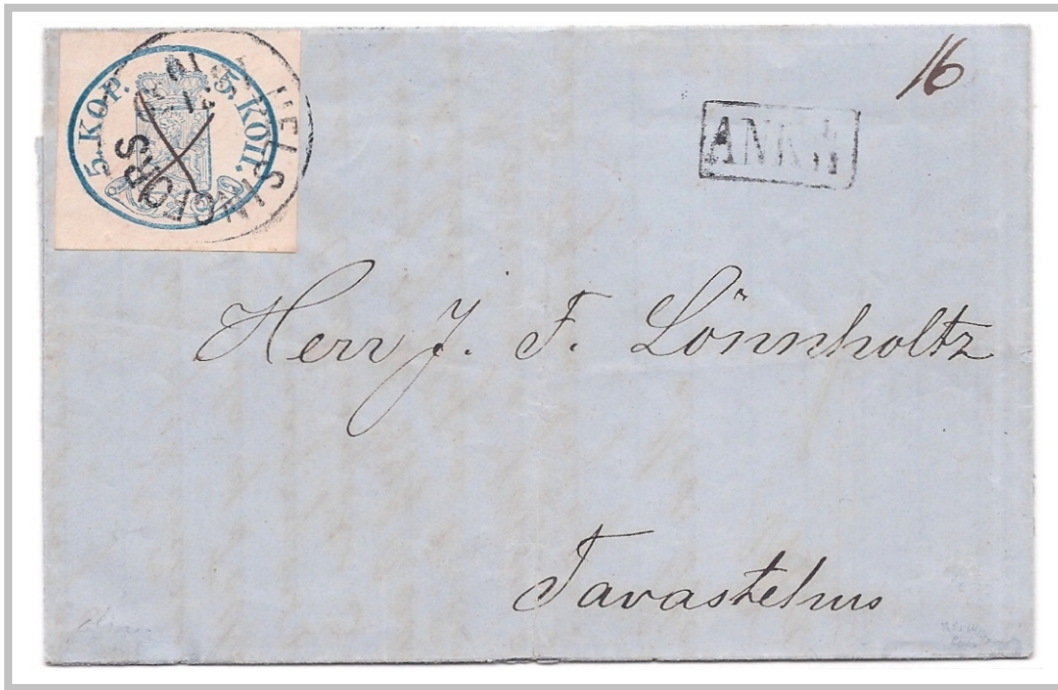 5. KOP. 5. КОП.
HELSINGFORS
16
ANK.
Herr J. F. Lönnholtz
Tavastehus